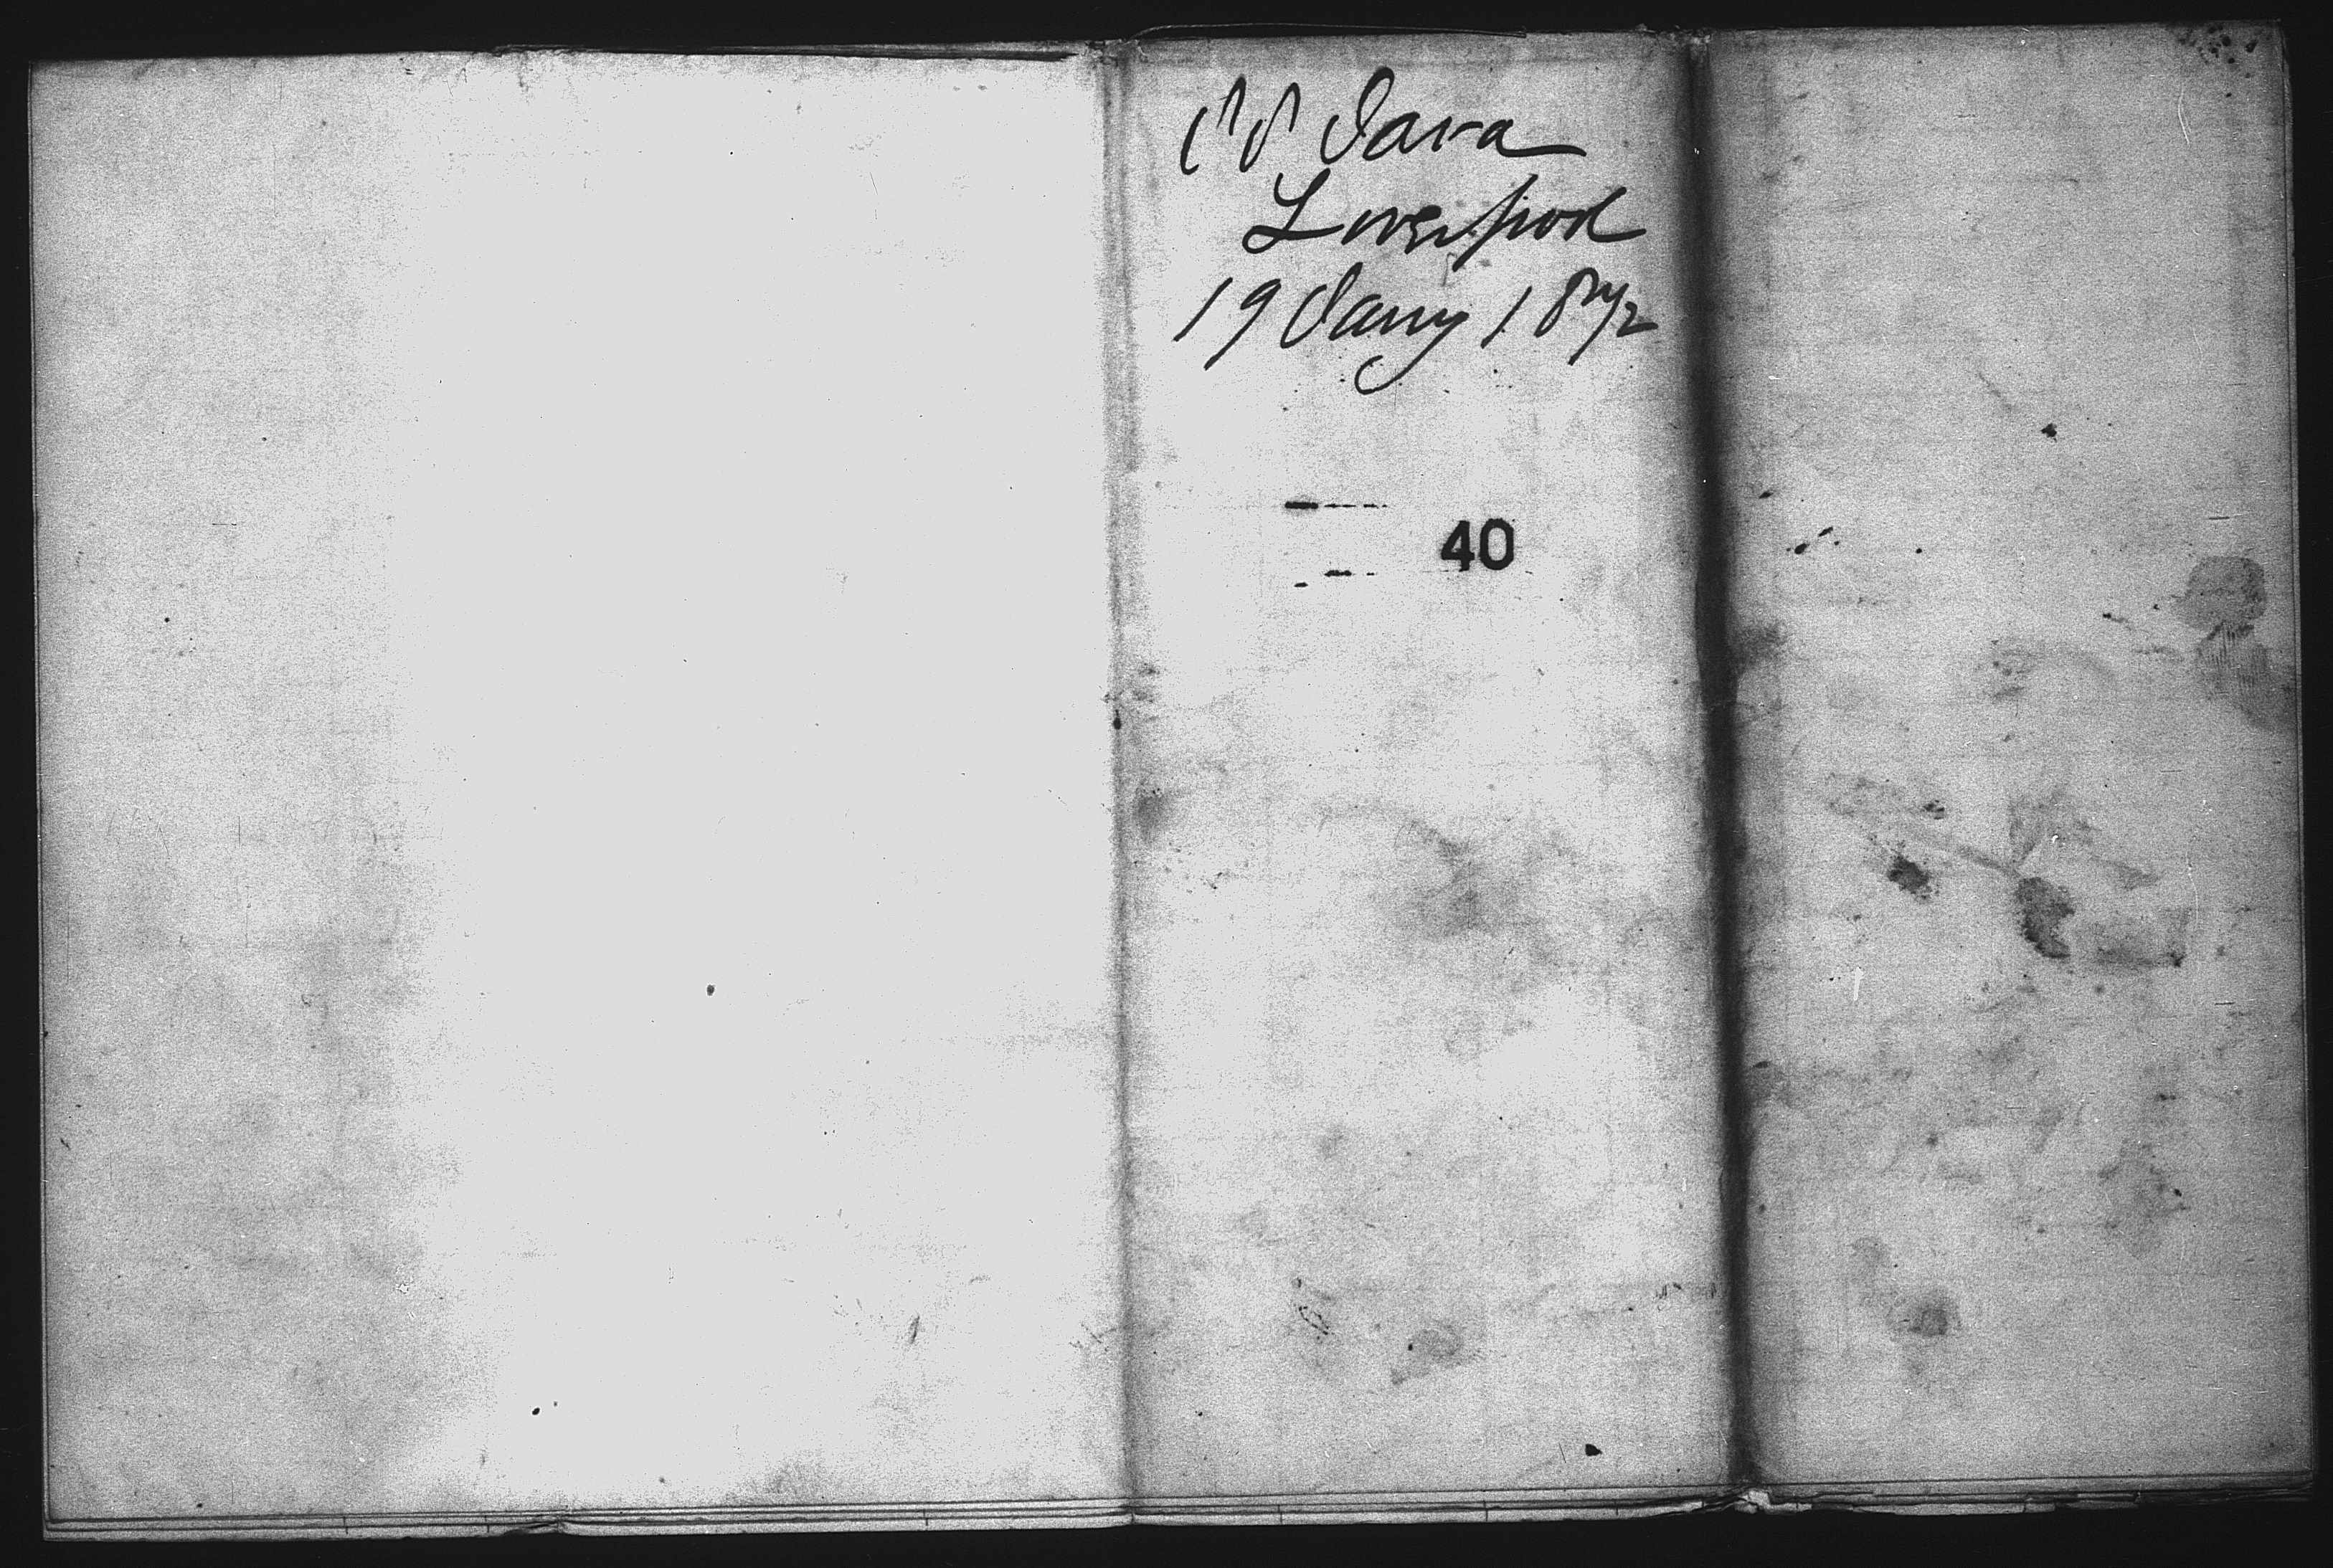 SS Java
Liverpool
19 Jany 1872
40